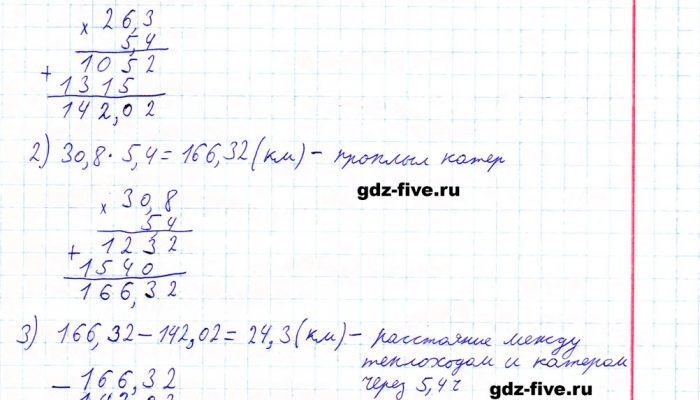 × 26,3
5,4
+ 1052
1315
142,02
2) 30,8 · 5,4 = 166,32 (км) – проплыл катер
gdz-five.ru
× 30,8
5,4
+ 1232
1540
166,32
3) 166,32 – 142,02 = 24,3 (км) – расстояние между
теплоходом и катером
через 5,4 ч
– 166,32
gdz-five.ru